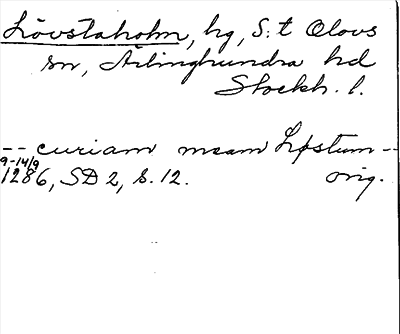 Lövstaholm, hg, S:t Olovs
sn, Ärlinghundra hd
Stockh. l.
-- curiam meam Løfstum --
9-14/9
1286, SD 2, s. 12. orig.